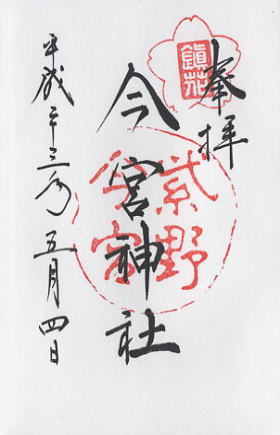 奉拝
鎮花
今宮神社
紫野
今宮
平成二十三年五月四日